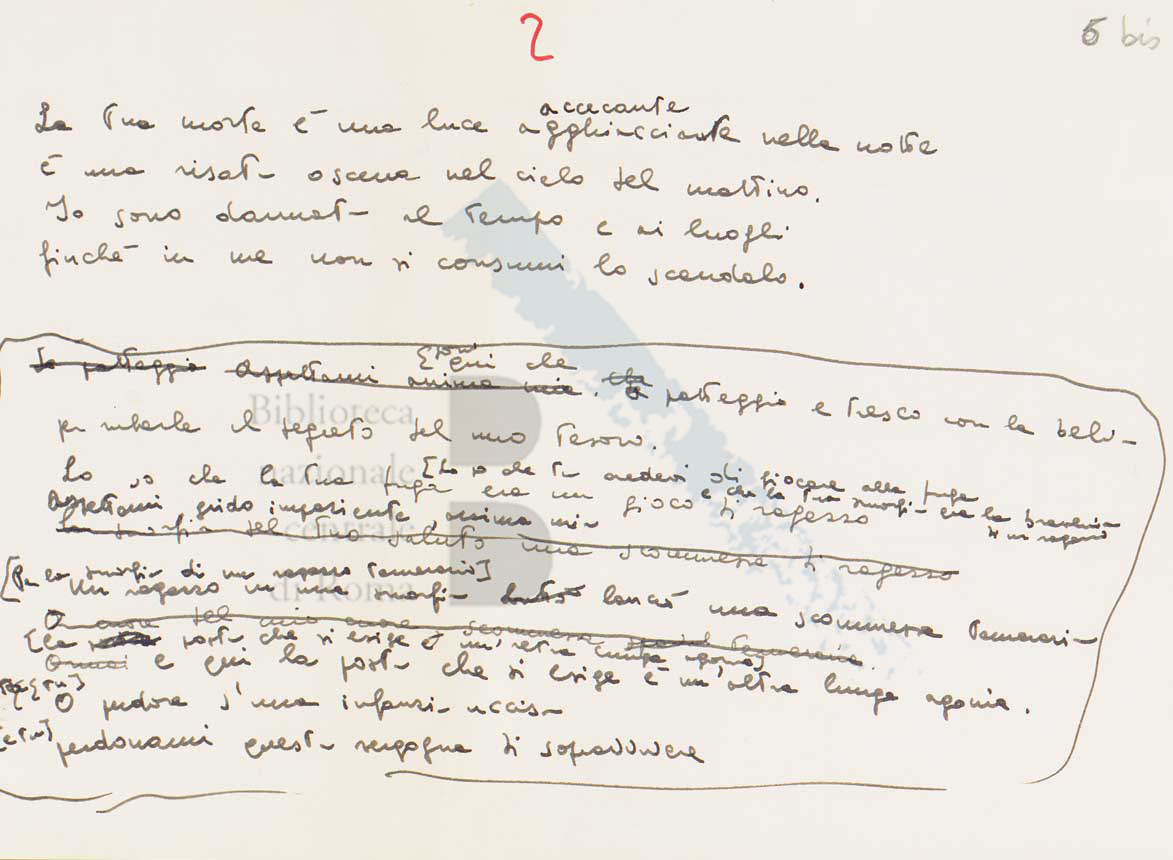 2
6 bis
accecante
La tua morte è una luce agghiacciante nella notte
È una risata oscena nel cielo del mattino.
Io sono dannata al tempo e ai luoghi
finché in me non si consumi lo scandalo.
qui che
Io patteggio Aspettami anima mia. patteggio e tresco con la belva
per rubarle il segreto del mio tesoro.
[Lo so che tu credevi di giocare alla fuga
Lo so che la tua fuga era un gioco di ragazzo
e che la tua smorfia era la braveria
di un ragazzo
Aspettami guido impaziente, anima mia
La smorfia del tuo saluto una scommessa di ragazzo
[Per la smorfia di un ragazzo temerario]
Un ragazzo in una smorfia lanciò una scommessa temeraria
[La posta che si esige è un'altra lunga agonia]
Ormai e qui la posta che si esige è un'altra lunga agonia.
[Tu]
O pudore d'una infanzia uccisa
[e tu]
perdonami questa vergogna di sopravvivere
Biblioteca
nazionale
centrale
di Roma